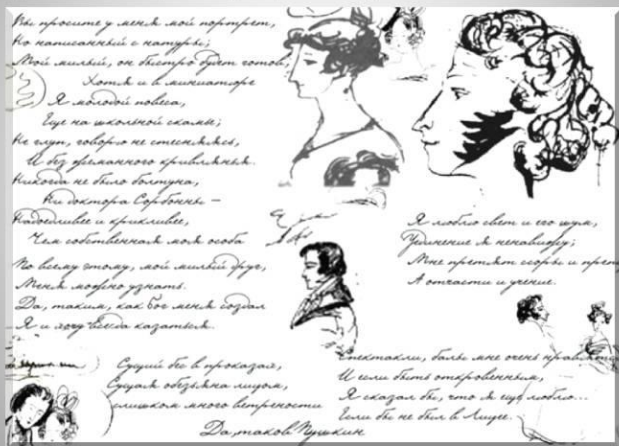 Вы просите у меня мой портрет,
Но написанный с натуры;
Мой милый, он быстро будет готов,
Хотя и в миниатюре
Я молодой повеса,
Еще на школьной скамье;
Не глуп, говорю не стесняясь,
И без жеманного кривлянья.
Никогда не было болтуна,
Ни доктора Сорбонны –
Надоедливее и крикливее,
Чем собственная моя особа
По всему этому, мой милый друг,
Меня можно узнать.
Да, таким, как бог меня создал
Я и хочу всегда казаться.
Сущий бес в проказах,
Сущая обезьяна лицом,
слишком много ветрености
Да, таков Пушкин
Я люблю свет и его шум,
Уединение я ненавижу;
Мне претят ссоры и
А отчасти и учение.
Спектакли, балы мне очень
И если быть откровенным,
Я сказал бы, что я еще люблю...
Если бы не был в Лицее.